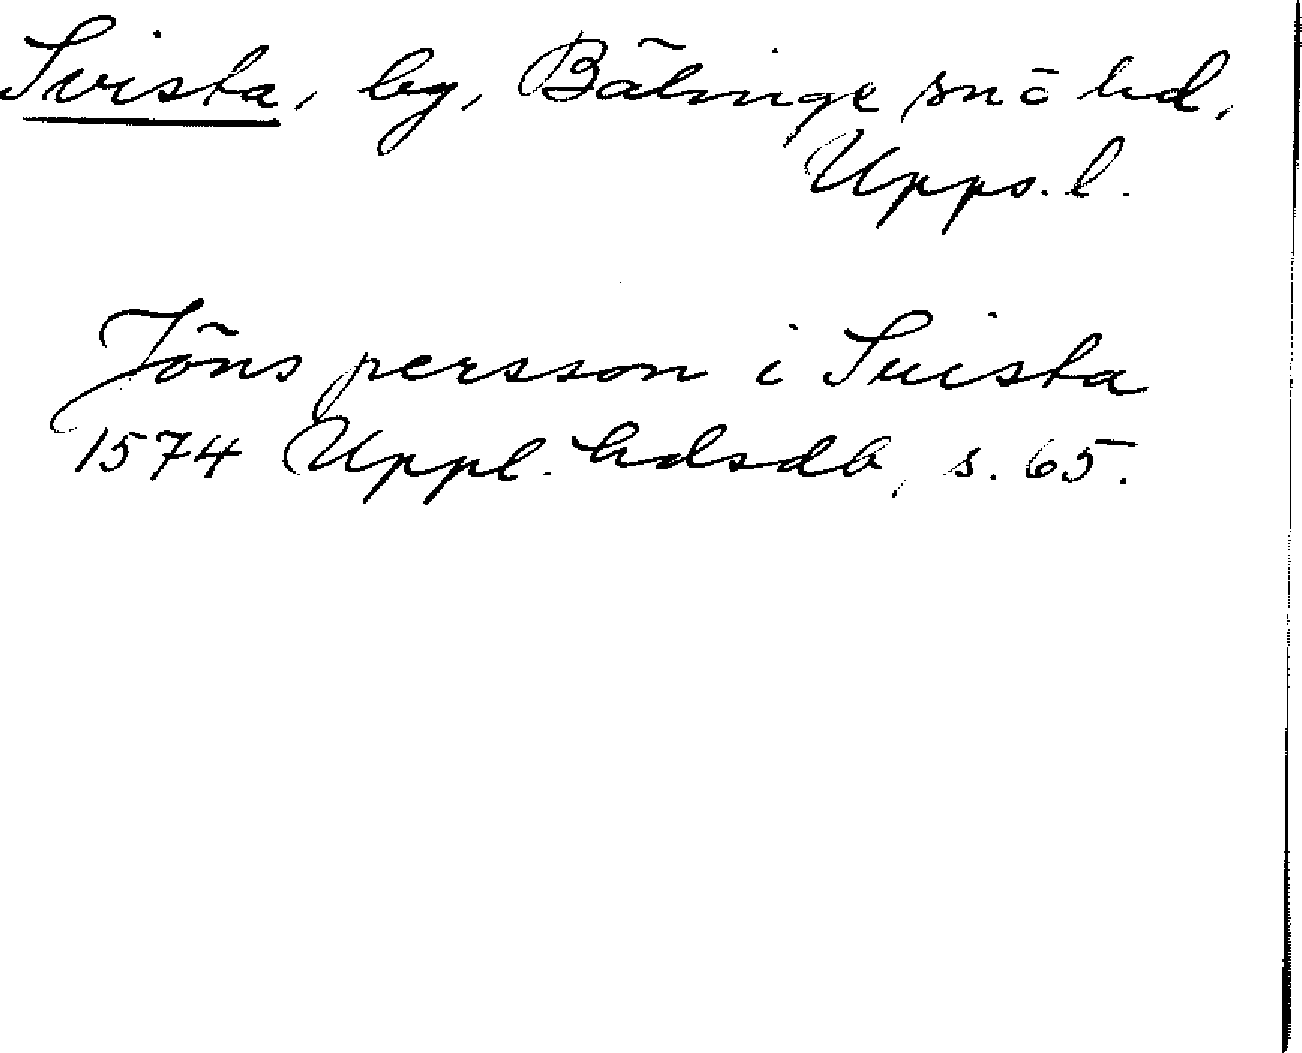 Svista, by, Bälinge sn o hd,
Upps. l.
Jöns persson i Suista
1574 Uppl. hdsdb, s. 65.